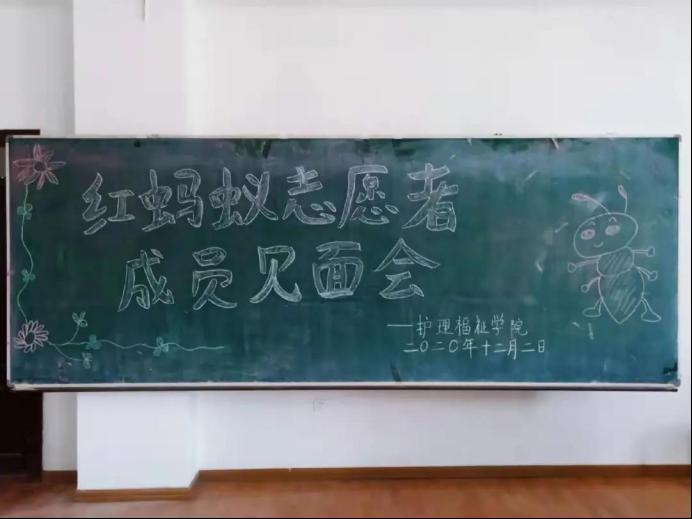 红蚂蚁志愿者
成员见面会
—护理福祉学院
二〇二〇年十二月二日